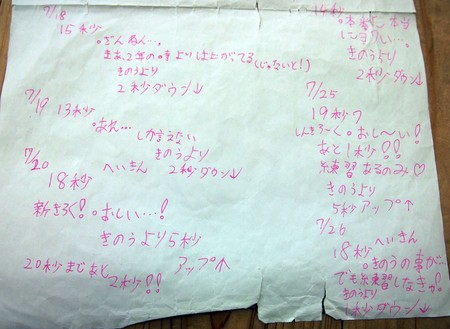 7/18
15秒
。ざんねん…。
まぁ、2年の時よりは上がってる(じゃないと!)
きのうより
2秒ダウン↓
7/19 13秒
。あれ…
しか言えない
きのうより
2秒ダウン↓
7/20 へいきん
18秒
新きろく!。おしい…!
きのうより5秒
アップ↑
20秒まであと
2秒!!
14秒
。本当に本当
にきびしい…。
きのうより
2秒ダウン↓
7/25
19秒7
しんきろ〜く。おし〜い!
あと1秒!!
練習あるのみ♡
きのうより
5秒アップ↑
7/26
18秒 へいきん
。きのうの事が…
でも練習しなきゃ!
きのうより
1秒ダウン↓